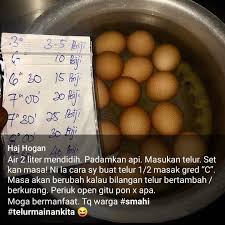 3" 3-5 Biji
10 Biji
6" 30 15 Biji
7" 00 20 Biji
7" 30 25 Biji
30 Biji
Haj Hogan
Air 2 liter mendidih. Padamkan api. Masukan telur. Set
kan masa! Ni la cara sy buat telur 1/2 masak gred "C".
Masa akan berubah kalau bilangan telur bertambah /
berkurang. Periuk open gitu pon x apa.
Moga bermanfaat. Tq warga #smahi
#telurmainankita